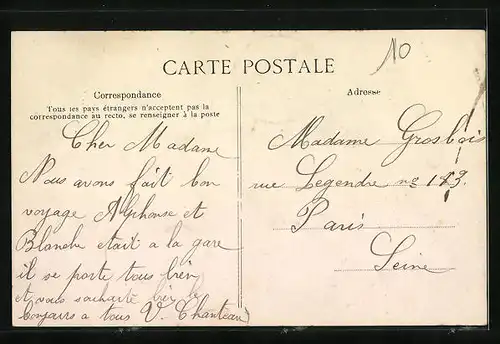 CARTE POSTALE
10
Correspondance
Tous les pays étrangers n'acceptent pas la
correspondance au recto, se renseigner à la poste
Adresse
Cher Madame
Nous avons fait bon
voyage Alphonse et
Blanche etait a la gare
il se porte tous bien
et vous souhaite bien le
bonjours a tous V. Chanteau
Madame Grosbois
rue Legendre no
Paris
Seine